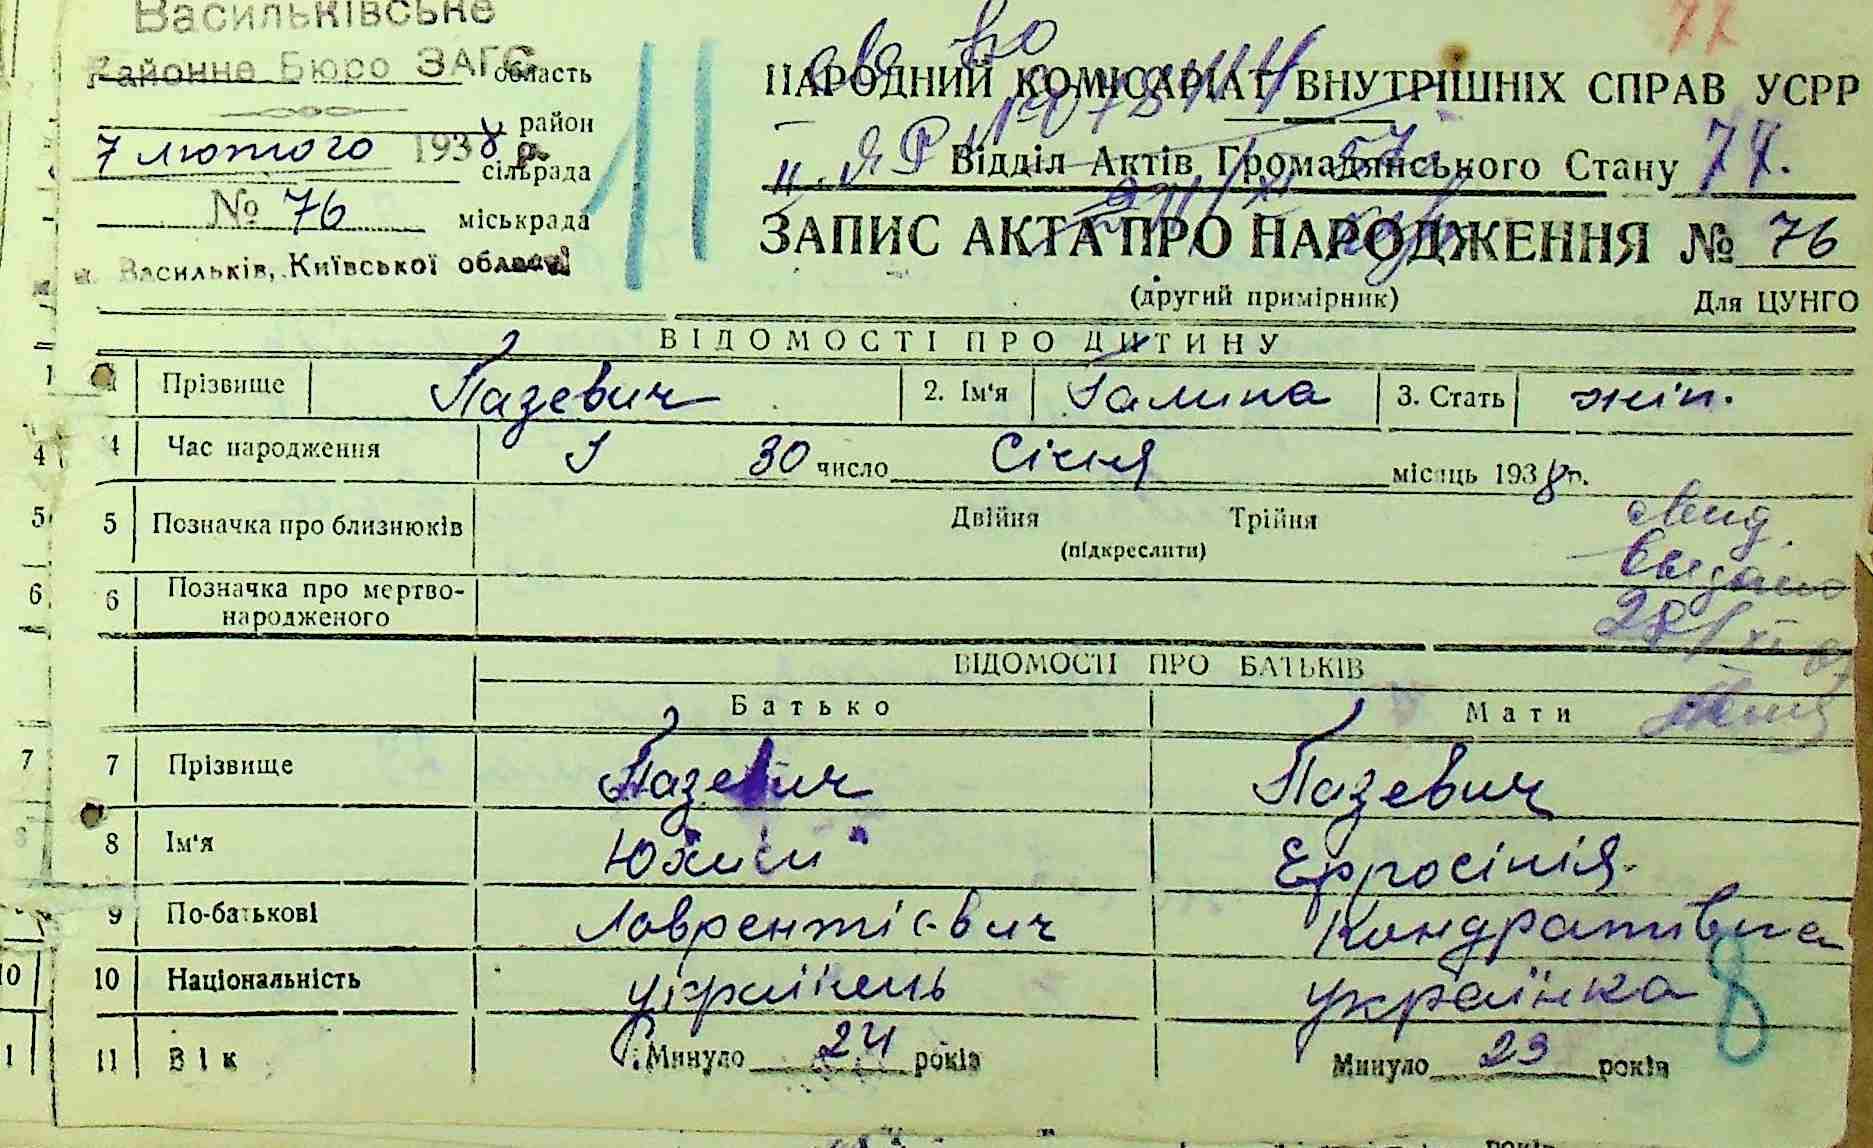 Васильківське
Районне Бюро ЗАГС область
район
7 лютого 1938 р.
сільрада
№ 76 міськрада
м. Васильків, Київської області
11
77
НАРОДНИЙ КОМІСАРІАТ ВНУТРІШНІХ СПРАВ УСРР
Відділ Актів Громадянського Стану 77.
ЗАПИС АКТА ПРО НАРОДЖЕННЯ № 76
(другий примірник) Для ЦУНГО
ВІДОМОСТІ ПРО ДИТИНУ
1 Прізвище Пазевич 2. Ім'я Галина 3. Стать жін.
4 4 Час народження 30 число Січня місяць 1938 р.
5 5 Позначка про близнюків Двійня Трійня
(підкреслити)
6 6 Позначка про мертво-
народженого
ВІДОМОСТІ ПРО БАТЬКІВ
Батько Мати
7 7 Прізвище Пазевич Пазевич
8 8 Ім'я Юхим Єфросінія
9 По-батькові Лаврентієвич Кондратівна
10 10 Національність українець українка
8
1 11 Вік Минуло 24 років Минуло 23 років